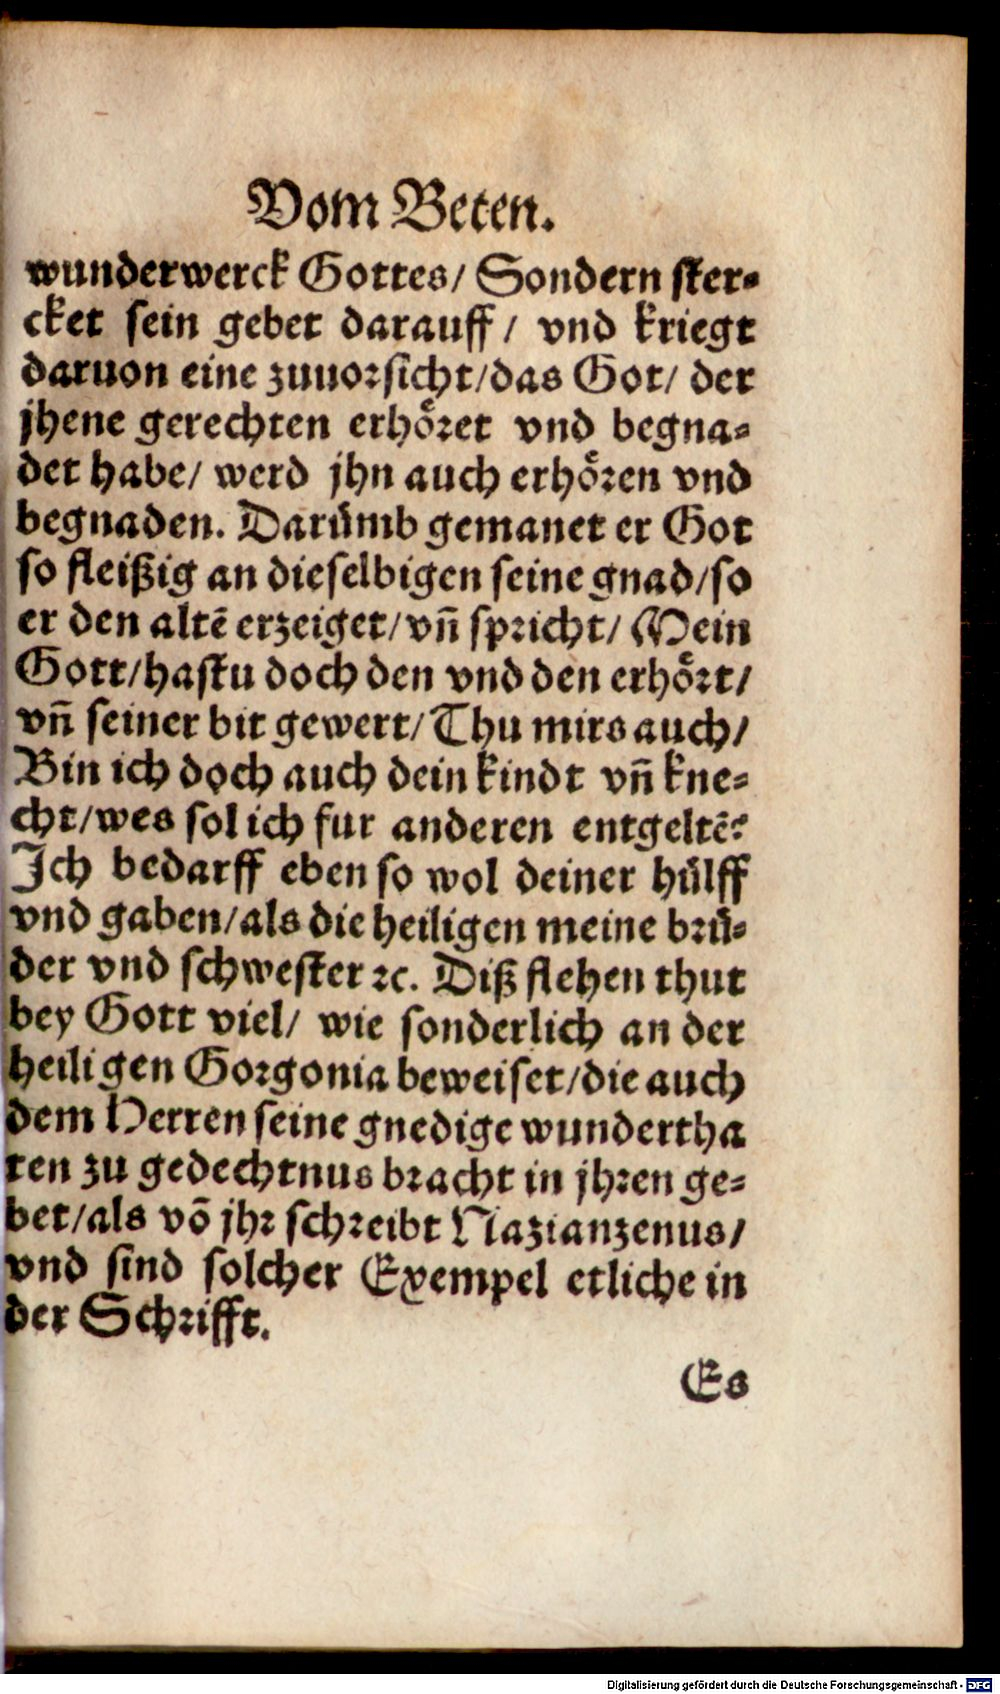 Vom Beten.
wunderwerck Gottes/ Sondern ster⸗
cket sein gebet darauff/ vnd kriegt
daruon eine zuuorsicht/das Got/ der
jhene gerechten erhöret vnd begna⸗
det habe/ werd jhn auch erhören vnd
begnaden. Darümb gemanet er Got
so fleißig an dieselbigen seine gnad/so
er den altē erzeiget/vn̄ spricht/ Mein
Gott/hastu doch den vnd den erhört/
vn̄ seiner bit gewert/Thu mirs auch/
Bin ich doch auch dein kindt vn̄ kne⸗
cht/wes sol ich fur anderen entgeltē?
Ich bedarff eben so wol deiner hülff
vnd gaben/als die heiligen meine brü⸗
der vnd schwester ꝛc. Diß flehen thut
bey Gott viel/ wie sonderlich an der
heiligen Gorgonia beweiset/die auch
dem Herren seine gnedige wundertha
ten zu gedechtnus bracht in jhren ge⸗
bet/als vō jhr schreibt Nazianzenus/
vnd sind solcher Exempel etliche in
der Schrifft.
Es
Digitalisierung gefördert durch die Deutsche Forschungsgemeinschaft - DFG